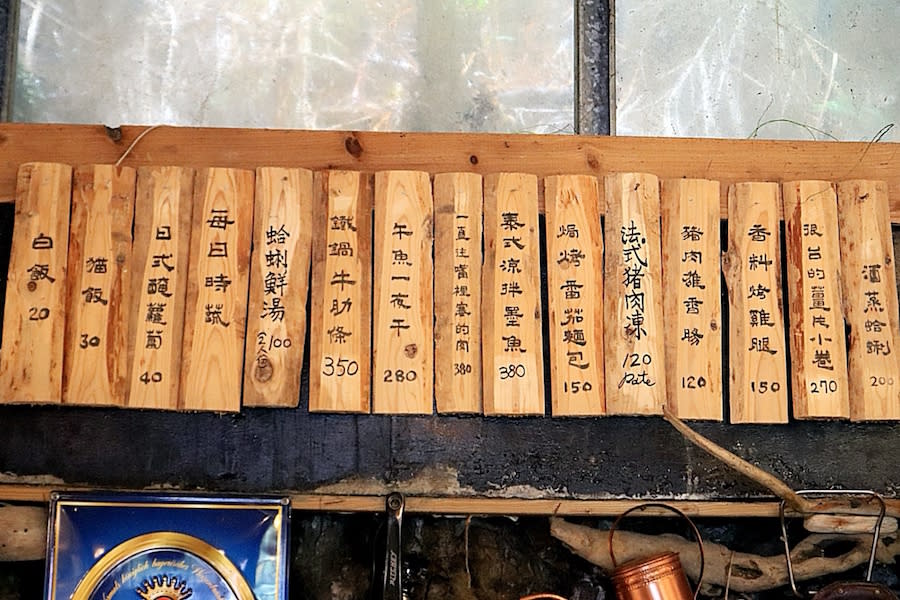 白飯
20
猫飯
30
日式醃蘿蔔
40
每日時蔬
蛤蜊鮮湯
2人份 100
鐵鍋牛肋條
350
午魚一夜干
280
一直往嘴裡塞的肉
380
泰式涼拌墨魚
380
焗烤番茄麵包
150
法式猪肉凍
120
pate
豬肉香腸
120
香料烤雞腿
150
很台的薑片小卷
270
酒蒸蛤蜊
200